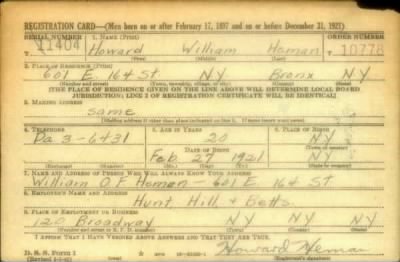 REGISTRATION CARD—(Men born on or after February 17, 1897 and on or before December 31, 1921)
SERIAL NUMBER 1. NAME (Print) ORDER NUMBER
T 11404 Howard William Heman T 10778
(First) (Middle) (Last)
2. PLACE OF RESIDENCE (Print)
601 E. 164 St NY Bronx NY
(Number and street) (Town, township, village, or city) (County) (State)
[THE PLACE OF RESIDENCE GIVEN ON THE LINE ABOVE WILL DETERMINE LOCAL BOARD
JURISDICTION; LINE 2 OF REGISTRATION CERTIFICATE WILL BE IDENTICAL]
3. MAILING ADDRESS
same
[Mailing address if other than place indicated on line 2. If same insert word same]
4. TELEPHONE 5. AGE IN YEARS 6. PLACE OF BIRTH
Da 3-6431 20 NY
DATE OF BIRTH (Town or county)
Feb 27 1921 NY
(Mo.) (Day) (Yr.) (State or country)
7. NAME AND ADDRESS OF PERSON WHO WILL ALWAYS KNOW YOUR ADDRESS
William O.F Heman — 601 E. 164 St
8. EMPLOYER'S NAME AND ADDRESS
Hunt, Hill & Betts
9. PLACE OF EMPLOYMENT OR BUSINESS
120 Broadway NY NY NY
(Number and street or R. F. D. number) (Town) (County) (State)
I AFFIRM THAT I HAVE VERIFIED ABOVE ANSWERS AND THAT THEY ARE TRUE.
D. S. S. Form 1
Howard Heman